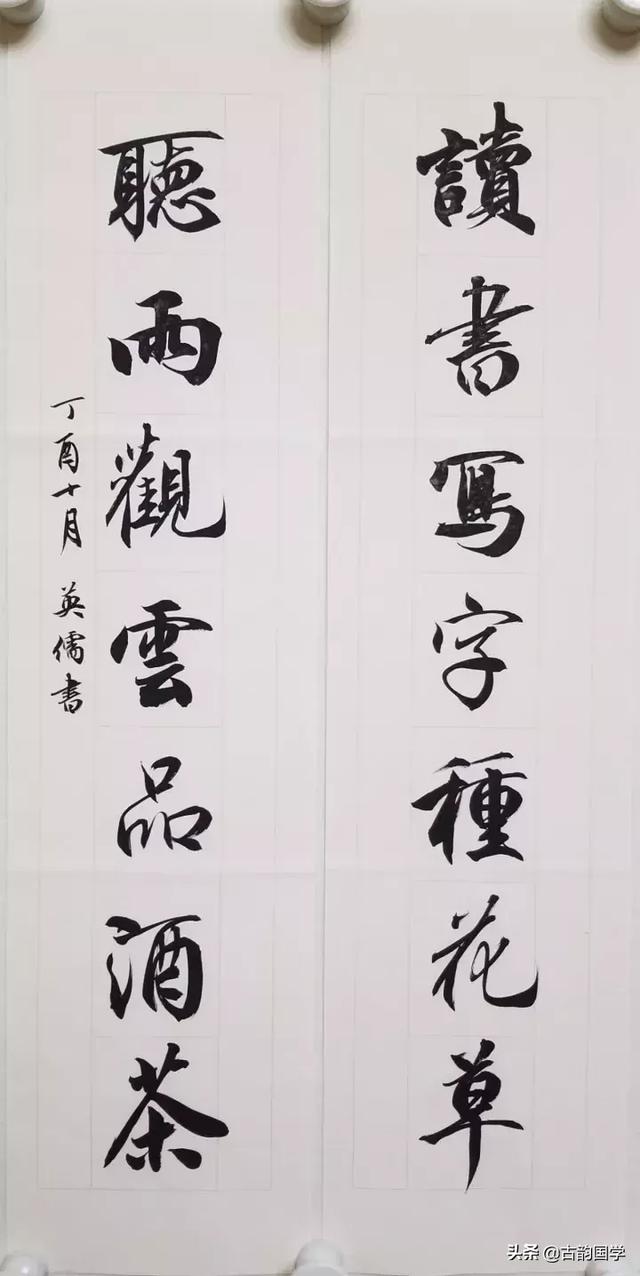 讀書寫字種花草
聽雨觀雲品酒茶
丁酉十月 英儒書
头条 @古韵国学